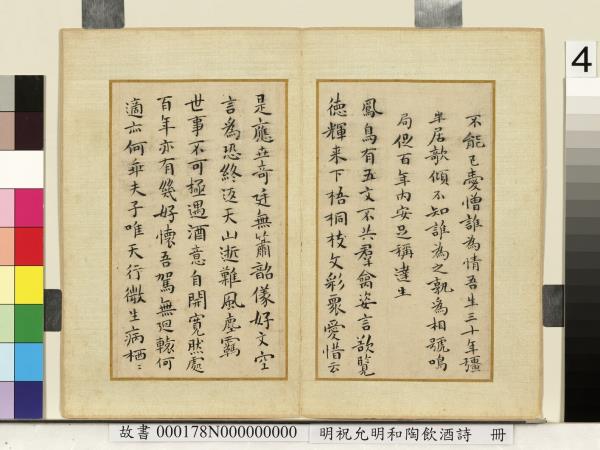 不能已憂憎誰為情吾生三十年彊
半居欹傾不知誰為之孰為相號鳴
局促百年內安足稱達生
鳳鳥有五文不共羣禽姿言欲覽
德輝来下梧桐枝文彩眾愛惜云
是應立奇廷無簫韶儀好文空
言為恐終返天山逝難風塵羈
世事不可極遇酒意自開寬然處
百年亦有幾好懷吾駕無迴轅何
適亦何乖夫子唯天行微生病栖:
4
故書 000178N000000000 明祝允明和陶飲酒詩 冊